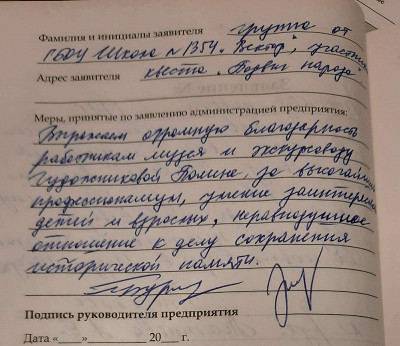 Фамилия и инициалы заявителя группа от
ГБОУ Школа №1354 "Вектор", участники
Адрес заявителя квеста "Подвиг народа"
Меры, принятые по заявлению администрацией предприятия:
Выражаем огромную благодарность
работникам музея и экскурсоводу
Художниковой Полине, за высочайший
профессионализм, умение заинтересовать
детей и взрослых, неравнодушное
отношение к делу сохранения
исторической памяти.
Подпись руководителя предприятия
Дата «___» __________ 20___ г.